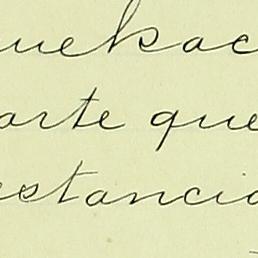 uekac
arte que
estancia